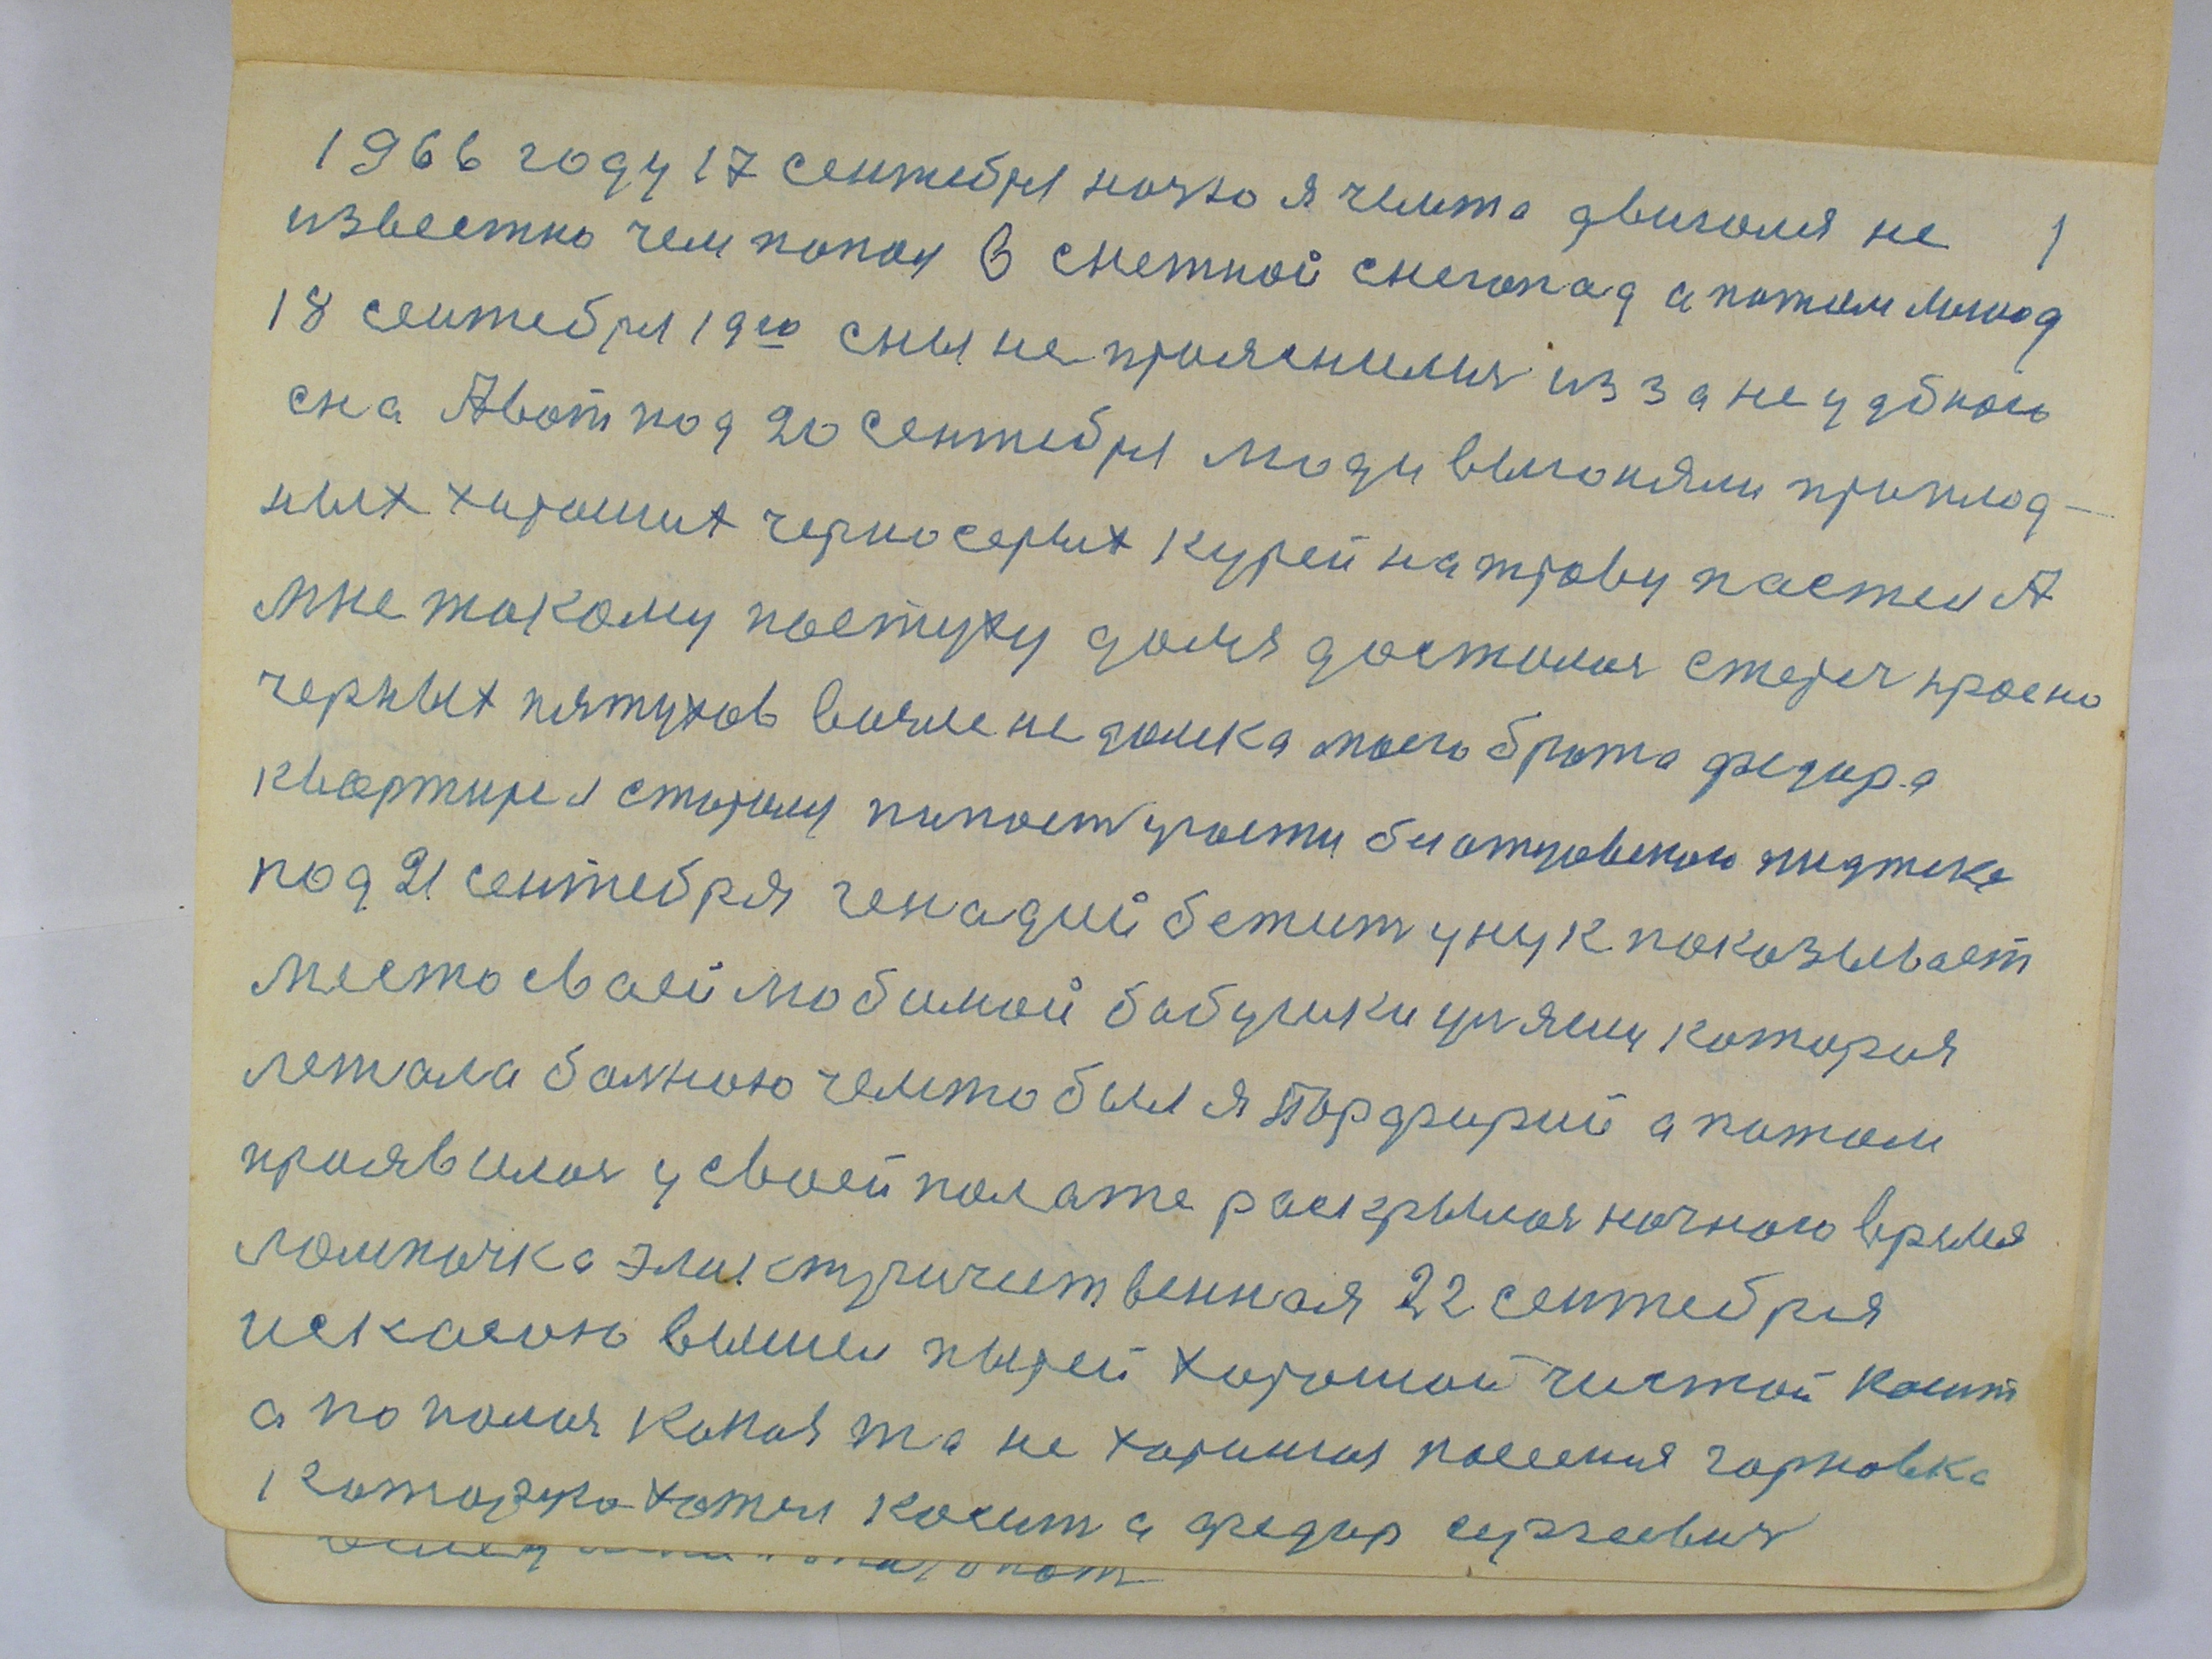 1966 году 17 сентебря ночю я чемта двигался не 1
известно чем попал В снежной снегопад а потом молод
18 сентебря 19го сны не прояснился из за не удбного
сна А вот под 20 сентебря люди выгоняли приплод-
ных хороших черно серых курей на траву пастел А
мне такому постуху доля досталося стереч красно
черных пятухов возле не домка моего брата федора
квартире и сторожу
под 21 сентебря генадий бежит унук показывает
место сваей любимой бабушки уляши которая
лежала болною чемто был я Порфирий а потом
проявился у своей полате раскрылося ночного время
лампочка электричественная 22 сентебря
искосою вышел пырей хорошой чистой косит
а попался какая та не хорошая посеяня гарновка
которую хотел косит а федор сергеевич